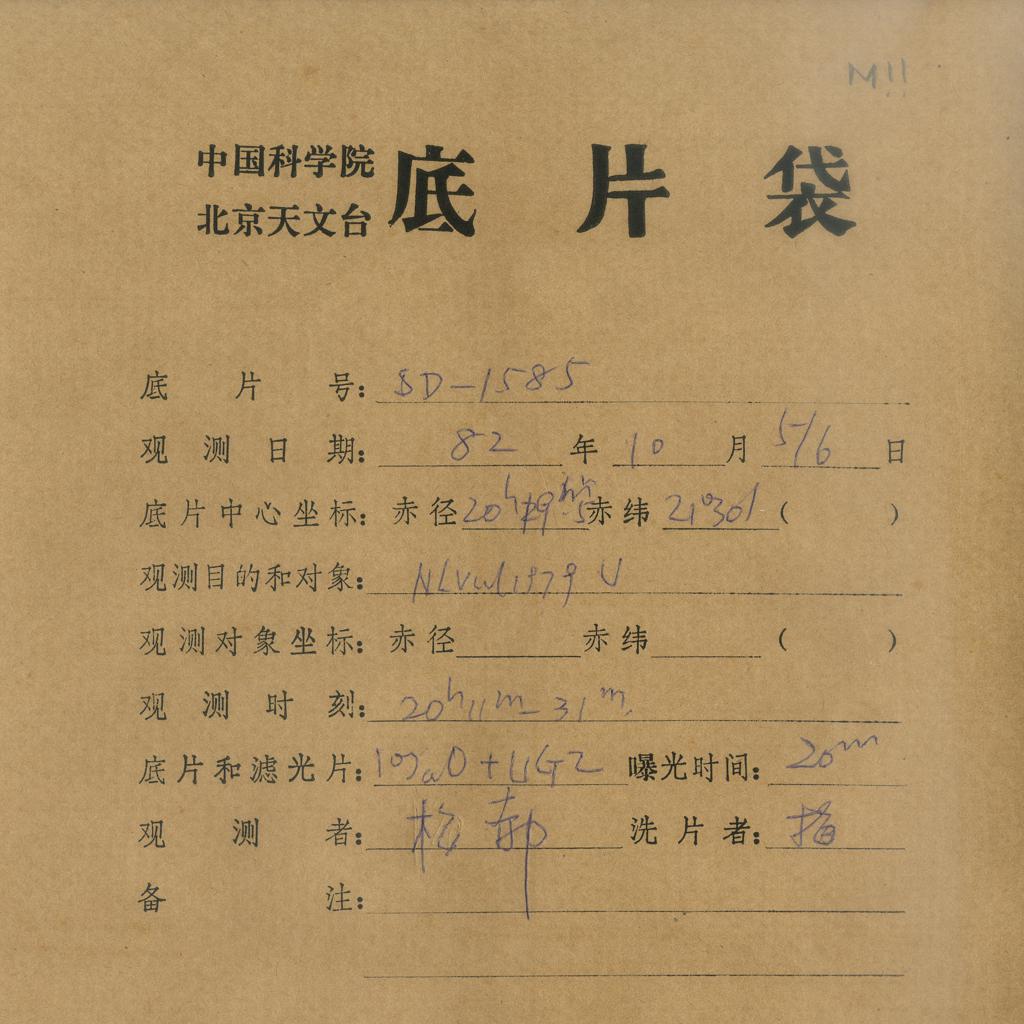 M!!
中国科学院
北京天文台
底片袋
底片号: BD-1585
观测日期: 82年10月5/6日
底片中心坐标: 赤径 20ʰ 赤纬 21°30′ ( )
观测目的和对象: 1979 U
观测对象坐标: 赤径 赤纬 ( )
观测时刻: 20ʰ11ᵐ-31ᵐ.
底片和滤光片: 103aO+UG2 曝光时间: 20ᵐ
观测者: 郝 洗片者:
备注: